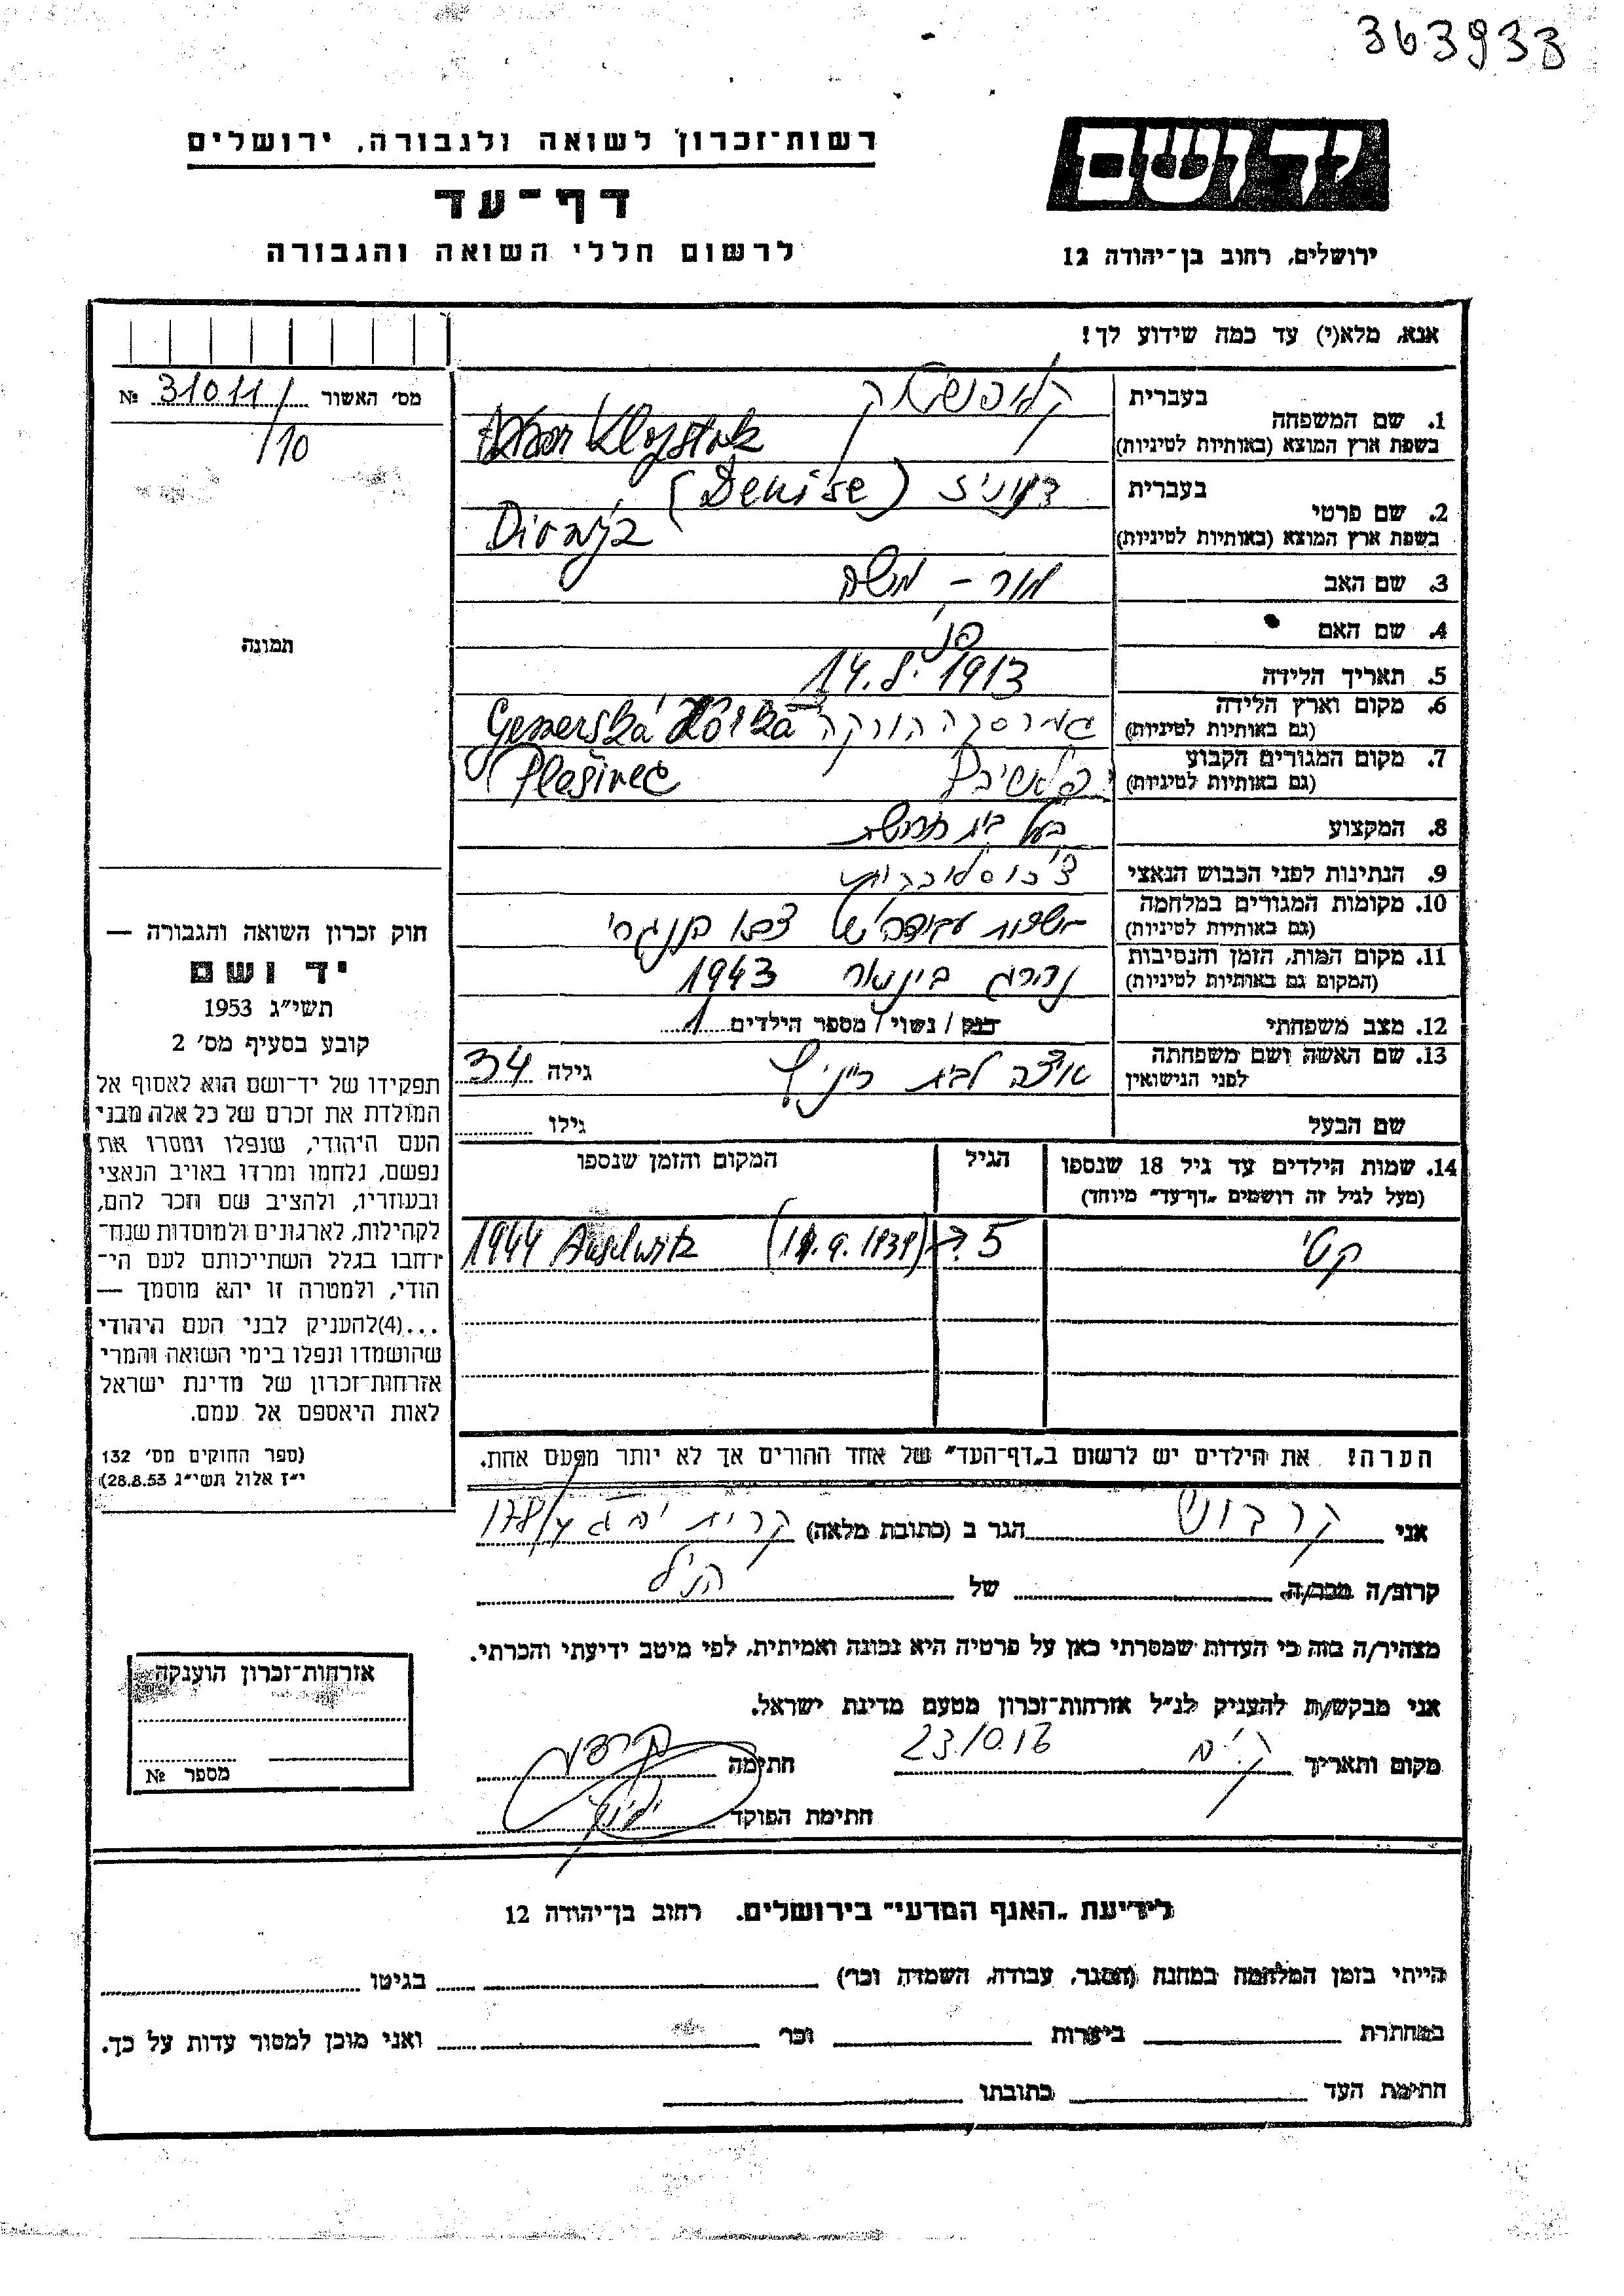 363933
רשות־זכרון לשואה ולגבורה, ירושלים
יד ושם
דף־עד
לרשום חללי השואה והגבורה
ירושלים, רחוב בן־יהודה 12
אנא, מלא(י) עד כמה שידוע לך!
מס׳ האשור 31011/ №
/10
תמונה
1. שם המשפחה
בעברית
בשפת ארץ המוצא (באותיות לטיניות)
2. שם פרטי
בעברית (Denise)
בשפת ארץ המוצא (באותיות לטיניות)
3. שם האב משה
4. שם האם
5. תאריך הלידה 14.8.1913
6. מקום וארץ הלידה הורקה Hôrka
(גם באותיות לטיניות)
7. מקום המגורים הקבוע
(גם באותיות לטיניות)
8. המקצוע בעל בית חרושת
9. הנתינות לפני הכבוש הנאצי
10. מקומות המגורים במלחמה
(גם באותיות לטיניות)
11. מקום המות, הזמן והנסיבות נהרג בינואר 1943
(המקום גם באותיות לטיניות)
12. מצב משפחתי רווק / נשוי / מספר הילדים 1
13. שם האשה ושם משפחתה לבית גילה 34
לפני הנישואין
שם הבעל גילו
14. שמות הילדים עד גיל 18 שנספו הגיל המקום והזמן שנספו
(מעל לגיל זה רושמים „דף־עד״ מיוחד)
קטי 5 1944
הערה! את הילדים יש לרשום ב„דף־העד״ של אחד ההורים אך לא יותר מפעם אחת.
חוק זכרון השואה והגבורה —
יד ושם
תשי״ג 1953
קובע בסעיף מס׳ 2
תפקידו של יד־ושם הוא לאסוף אל
המולדת את זכרם של כל אלה מבני
העם היהודי, שנפלו ומסרו את
נפשם, נלחמו ומרדו באויב הנאצי
ובעוזריו, ולהציב שם וזכר להם,
לקהילות, לארגונים ולמוסדות שנח־
רחבו בגלל השתייכותם לעם הי־
הודי, ולמטרה זו יהא מוסמך —
...(4)להעניק לבני העם היהודי
שהושמדו ונפלו בימי השואה והמרי
אזרחות־זכרון של מדינת ישראל
לאות היאספם אל עמם.
(ספר החוקים מס׳ 132
י״ז אלול תשי״ג 28.8.53)
אני קרבוש הגר ב (כתובת מלאה) קרית
קרוב/ה מכר/ה של הנ״ל
מצהיר/ה בזה כי העדות שמסרתי כאן על פרטיה היא נכונה ואמיתית, לפי מיטב ידיעתי והכרתי.
אני מבקש/ת להעניק לנ״ל אזרחות־זכרון מטעם מדינת ישראל.
מקום ותאריך חתימה
חתימת הפוקד
אזרחות־זכרון הוענקה
מספר №
לידיעת „האנף המדעי״ בירושלים. רחוב בן־יהודה 12
הייתי בזמן המלחמה במחנה (הסגר, עבודה, השמדה וכו׳) בגיטו
במחתרת ביערות וכו׳ ואני מוכן למסור עדות על כך.
חתימת העד כתובתו